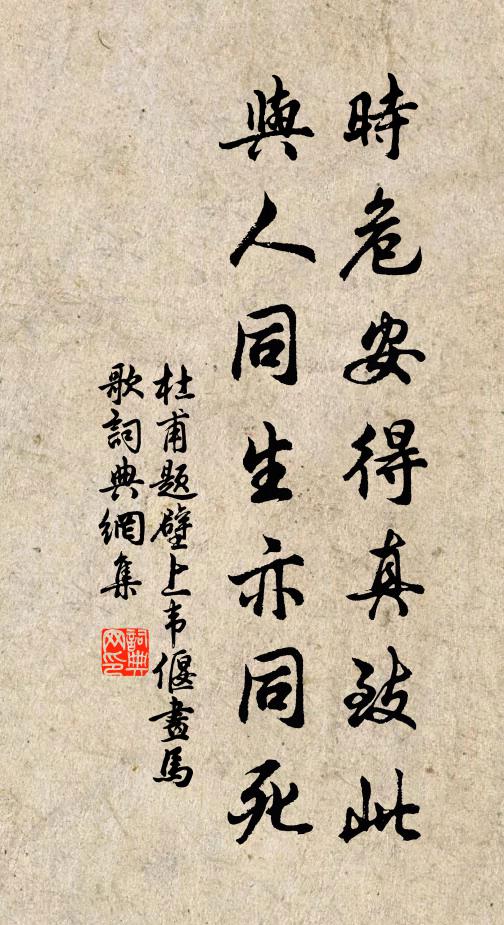 時危安得真致此
與人同生亦同死
杜甫題壁上韦偃畫馬
歌詞典網集
詞典
网印